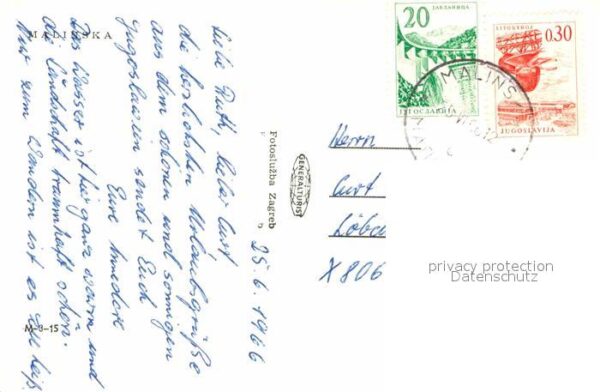 MALINSKA
Liebe Ruth, lieber Curt
die herzlichsten Urlaubsgrüße
aus dem schönen und sonnigen
Jugoslawien sendet Euch
Eure
Das Wasser ist hier ganz warm und
die Landschaft traumhaft schön.
Nur zum Wandern ist es zu heiß
M-3-15
Fotoslužba Zagreb
GENERALTURIST
25.6.1966
20
JABLANICA
JUGOSLAVIJA
LITOSTROJ
0.30
JUGOSLAVIJA
MALINS
Herrn
Curt
Löba
X 806
privacy protection
Datenschutz